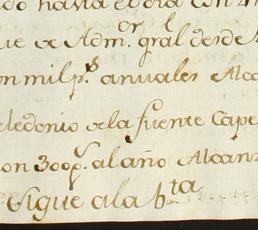 do hasta el dia con
que de Adm.or gral desde
on mil p.s anuales Alca
eledonio de la fuente Cape
on 300 p.s al año Alcanz
Sigue a la b.ta